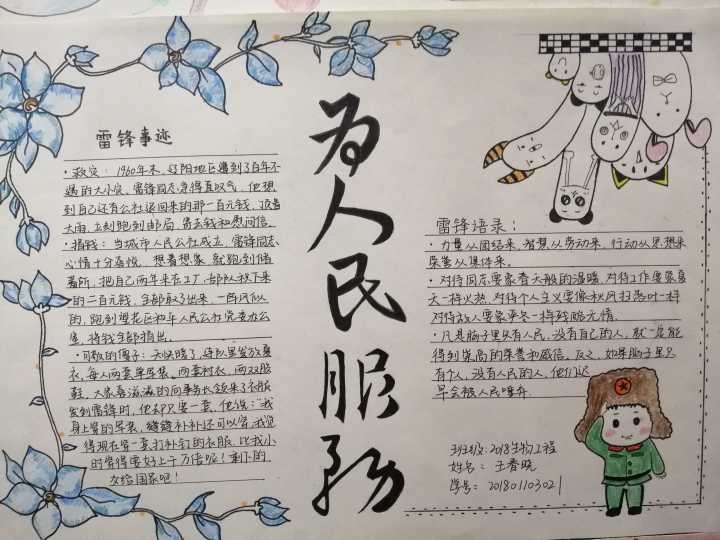 雷锋事迹
·救灾：1960年末，辽阳地区遭到了百年不
遇的大水灾，雷锋同志急得直叹气，他想
到自己还有公社退回来的那一百元钱，顶着
大雨，立刻跑到邮局，寄去钱和慰问信。
·捐钱：当城市人民公社成立，雷锋同志
心情十分喜悦，想着想家，就跑到储
蓄所，把自己两年来在工厂、部队积下来
的二百元钱，全部取了出来，一阵风似
的，跑到望花区和平人民公社党委办公
室，将钱全部捐出。
·可敬的"傻子"：天快暖了，部队里发放夏
衣，每人两套单军装，两套衬衣，两双胶
鞋，大家喜滋滋的向事务长领来了衣服
发到雷锋时，他却只要一套，他说："我
身上穿的军装，缝缝补补还可以穿，我觉
得现在穿一套打补钉的衣服，比我小
时穿得要好上千万倍呢！剩下的，
交给国家吧！
为人民服务
雷锋语录：
·力量从团结来，智慧从劳动来，行动从思想来
荣誉从集体来。
·对待同志要象春天般的温暖，对待工作要象夏
天一样火热，对待个人主义要像秋风扫落叶一样
对待敌人要象严冬一样残酷无情。
·凡是脑子里只有人民，没有自己的人，就一定能
得到崇高的荣誉和威信。反之，如果脑子里只
有个人，没有人民的人，他们迟
早会被人民唾弃
班级：2018生物工程
姓名：王春晓
学号：201801103021